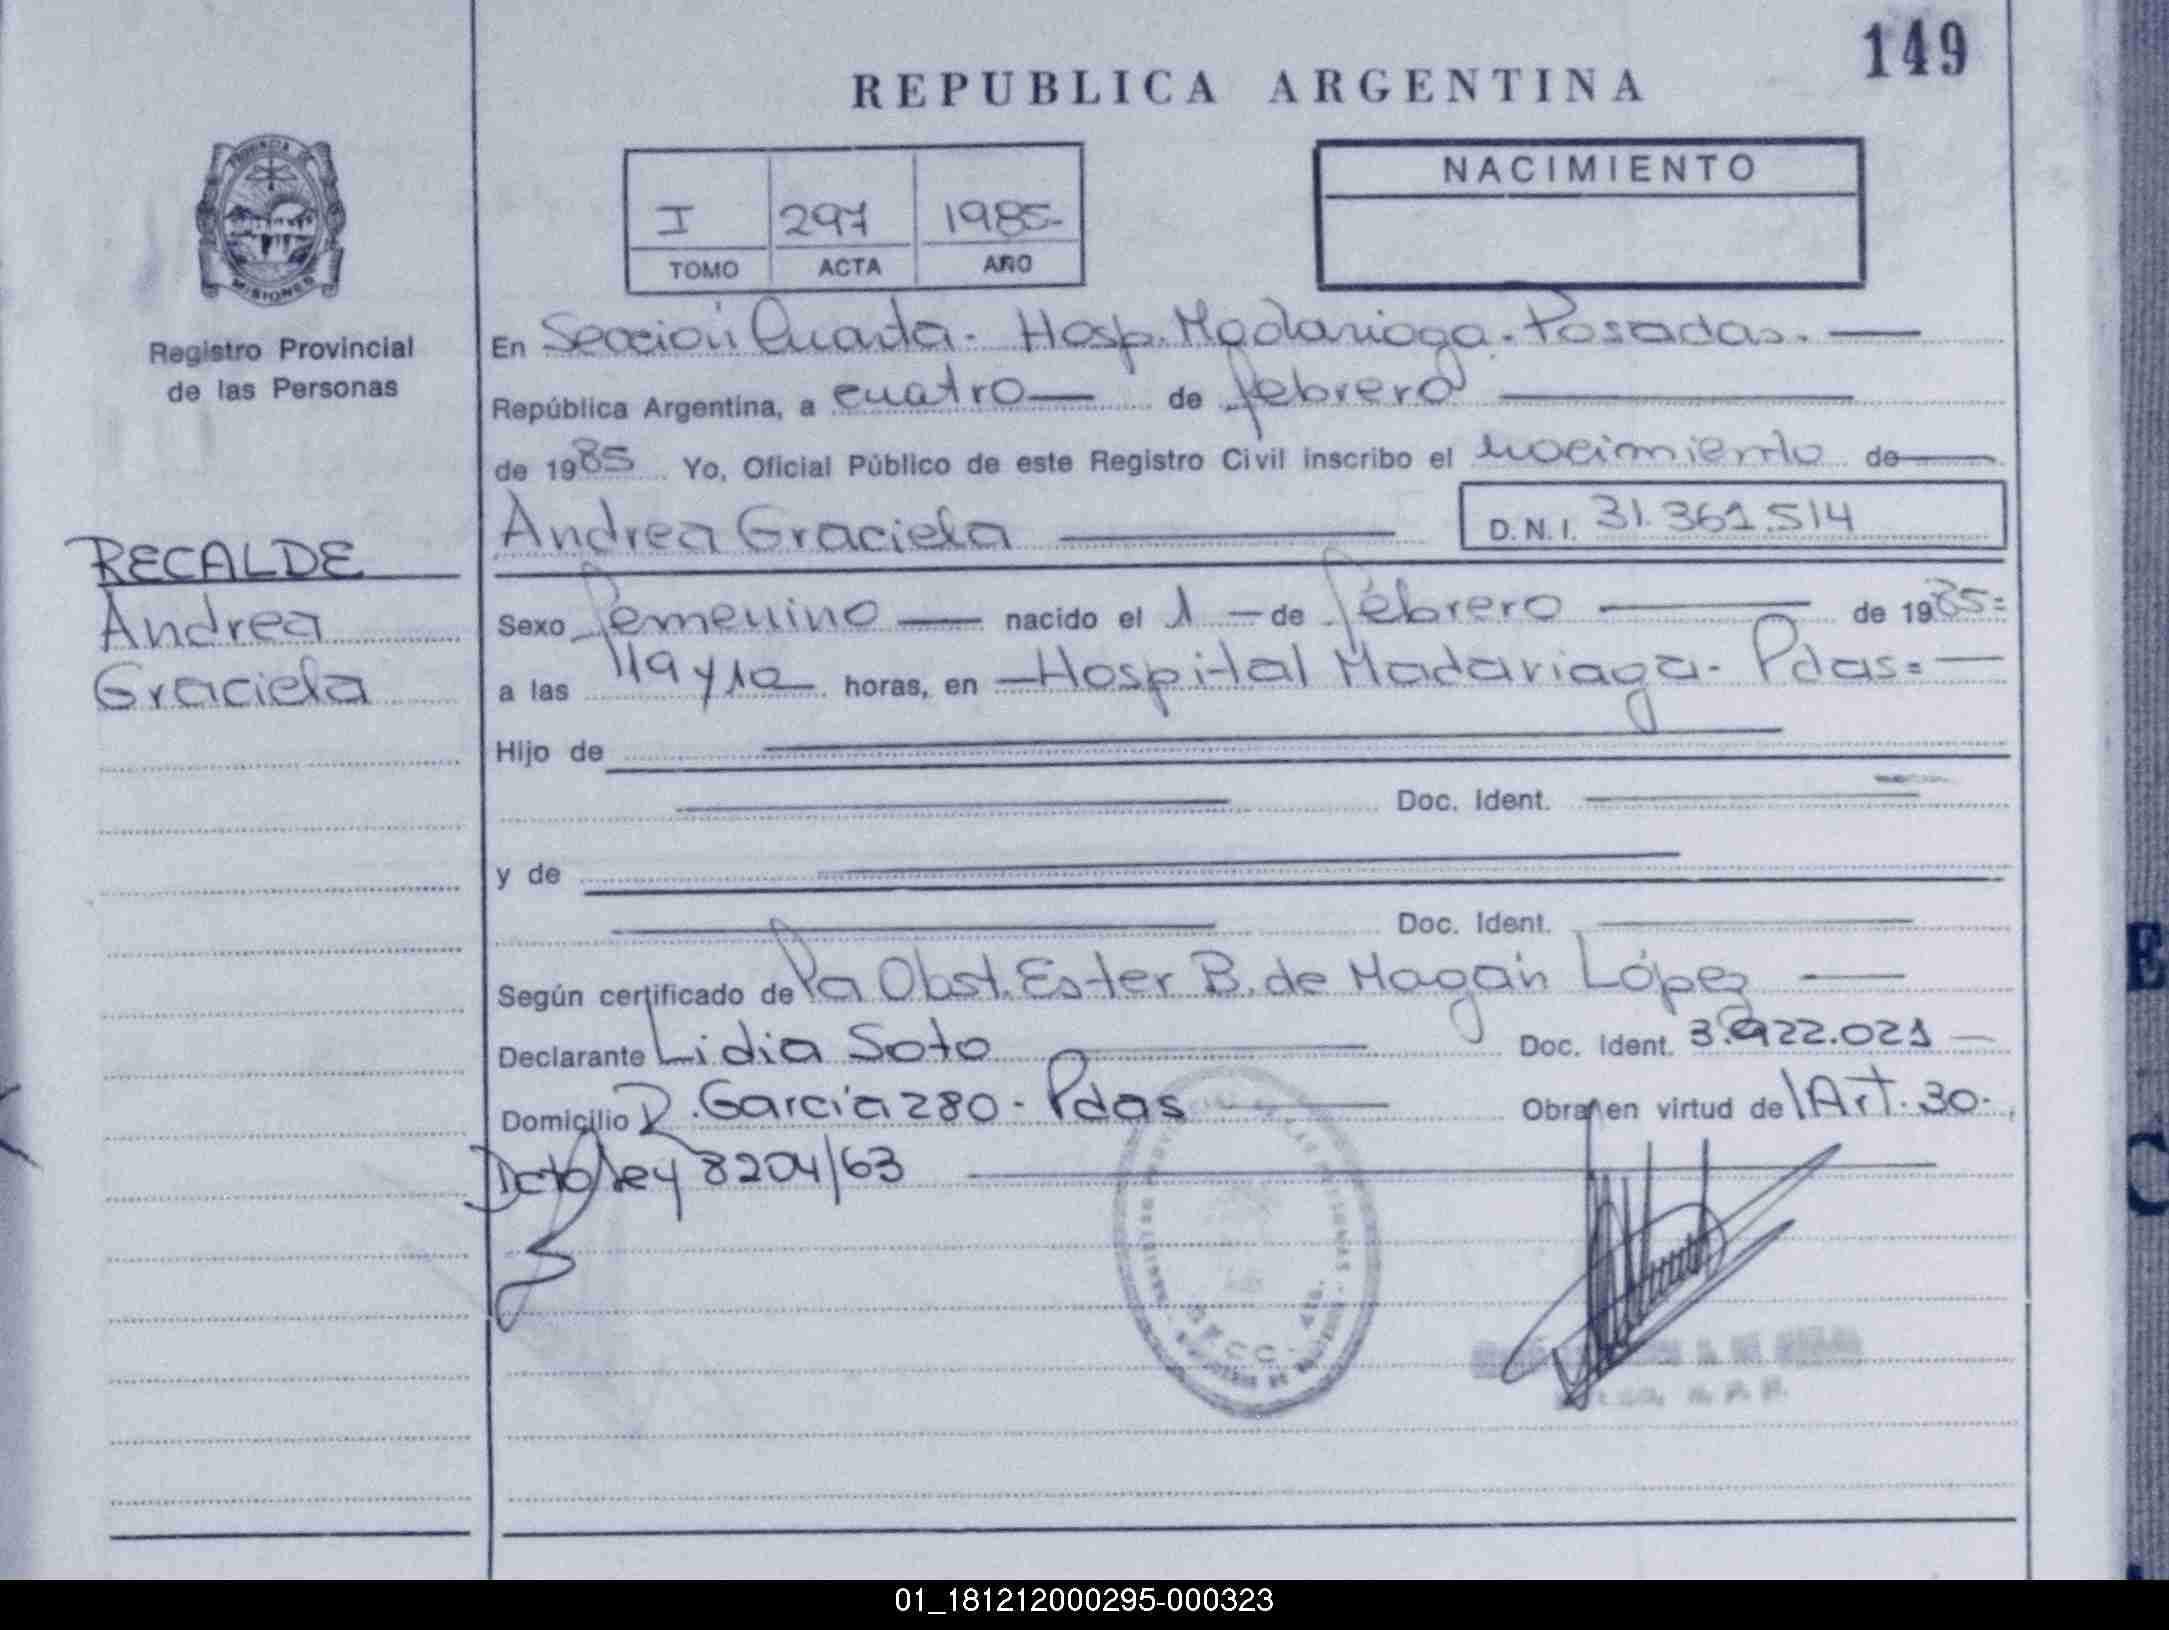 149
REPUBLICA ARGENTINA
PROVINCIA DE
MISIONES
Registro Provincial
de las Personas
I 297 1985-
TOMO ACTA AÑO
NACIMIENTO
En Sección Cuarta - Hosp. Madariaga - Posadas. —
República Argentina, a cuatro — de febrero —
de 1985 Yo, Oficial Público de este Registro Civil inscribo el nacimiento de —
Andrea Graciela — D.N.I. 31.361.514
RECALDE
Andrea
Graciela
Sexo femenino — nacido el 1 — de febrero — de 1985=
a las horas, en — Hospital Madariaga - Pdas= —
Hijo de
Doc. Ident.
y de
Doc. Ident.
Según certificado de la Obst. Ester B. de Magán López —
Declarante Lidia Soto — Doc. Ident. 3.922.021 —
Domicilio R. García 280 - Pdas — Obran en virtud de Art. 30.
Dcto ley 8204/63 —
01_181212000295-000323